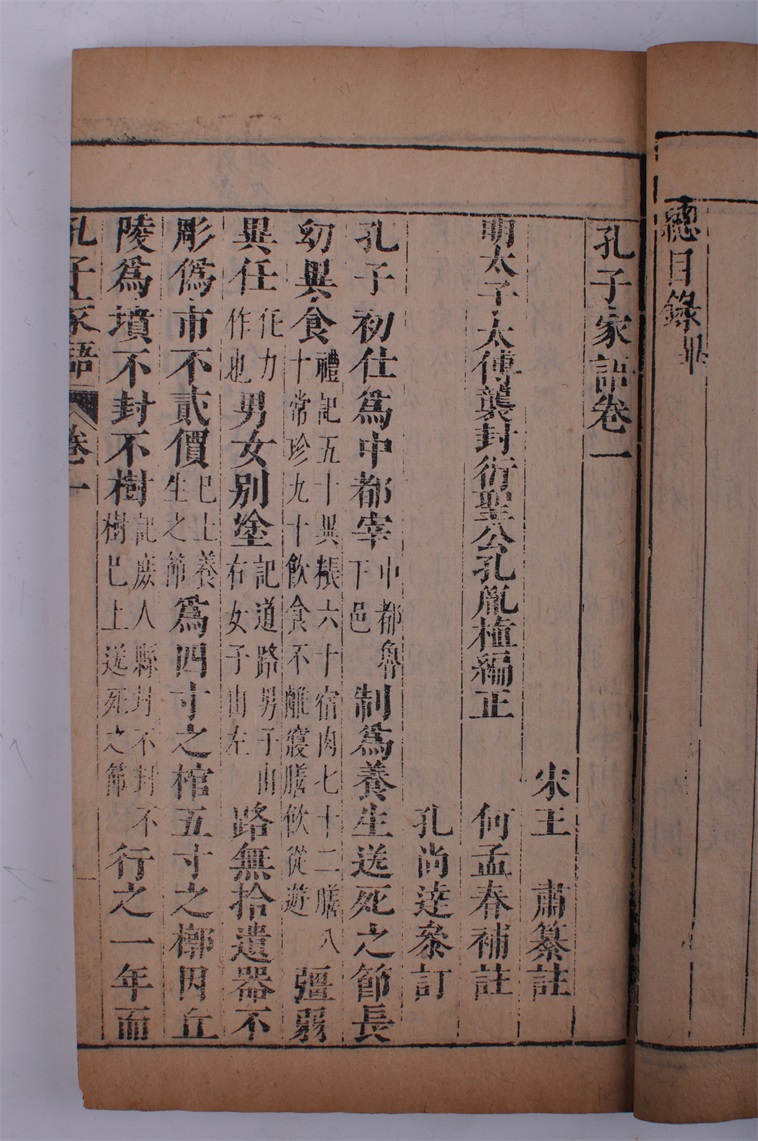 總目錄畢
孔子家語卷一
宋王　肅纂註
明太子太傅襲封衍聖公孔胤植編正　何孟春補註
孔尚達叅訂
孔子初仕爲中都宰中都魯下邑制爲養生送死之節長
幼異食禮記五十異粻六十宿肉七十二膳八十常珍九十飲食不離寢膳飲從遊彊弱
異任任力作也男女別塗記道路男子由右女子由左路無拾遺器不
彫僞市不貳價已上養生之節爲四寸之棺五寸之槨因丘
陵爲墳不封不樹記庶人縣封不封不樹已上送死之節行之一年而
孔子家語　卷一